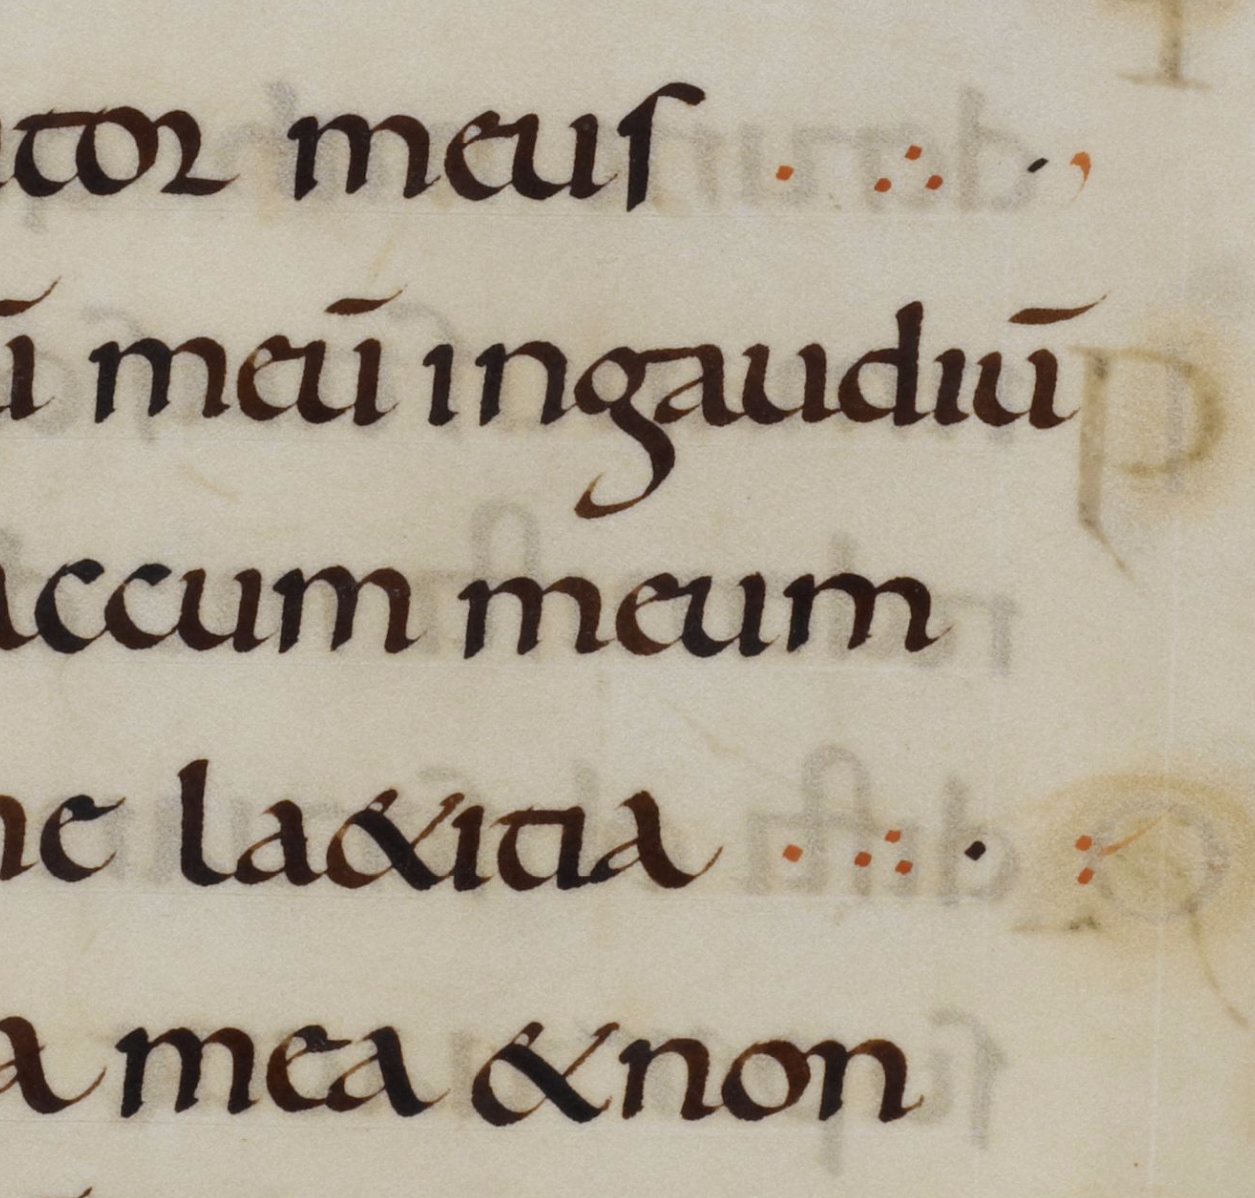 utor meus
ū meū ingaudiū
accum meum
me la&itia
a mea & non